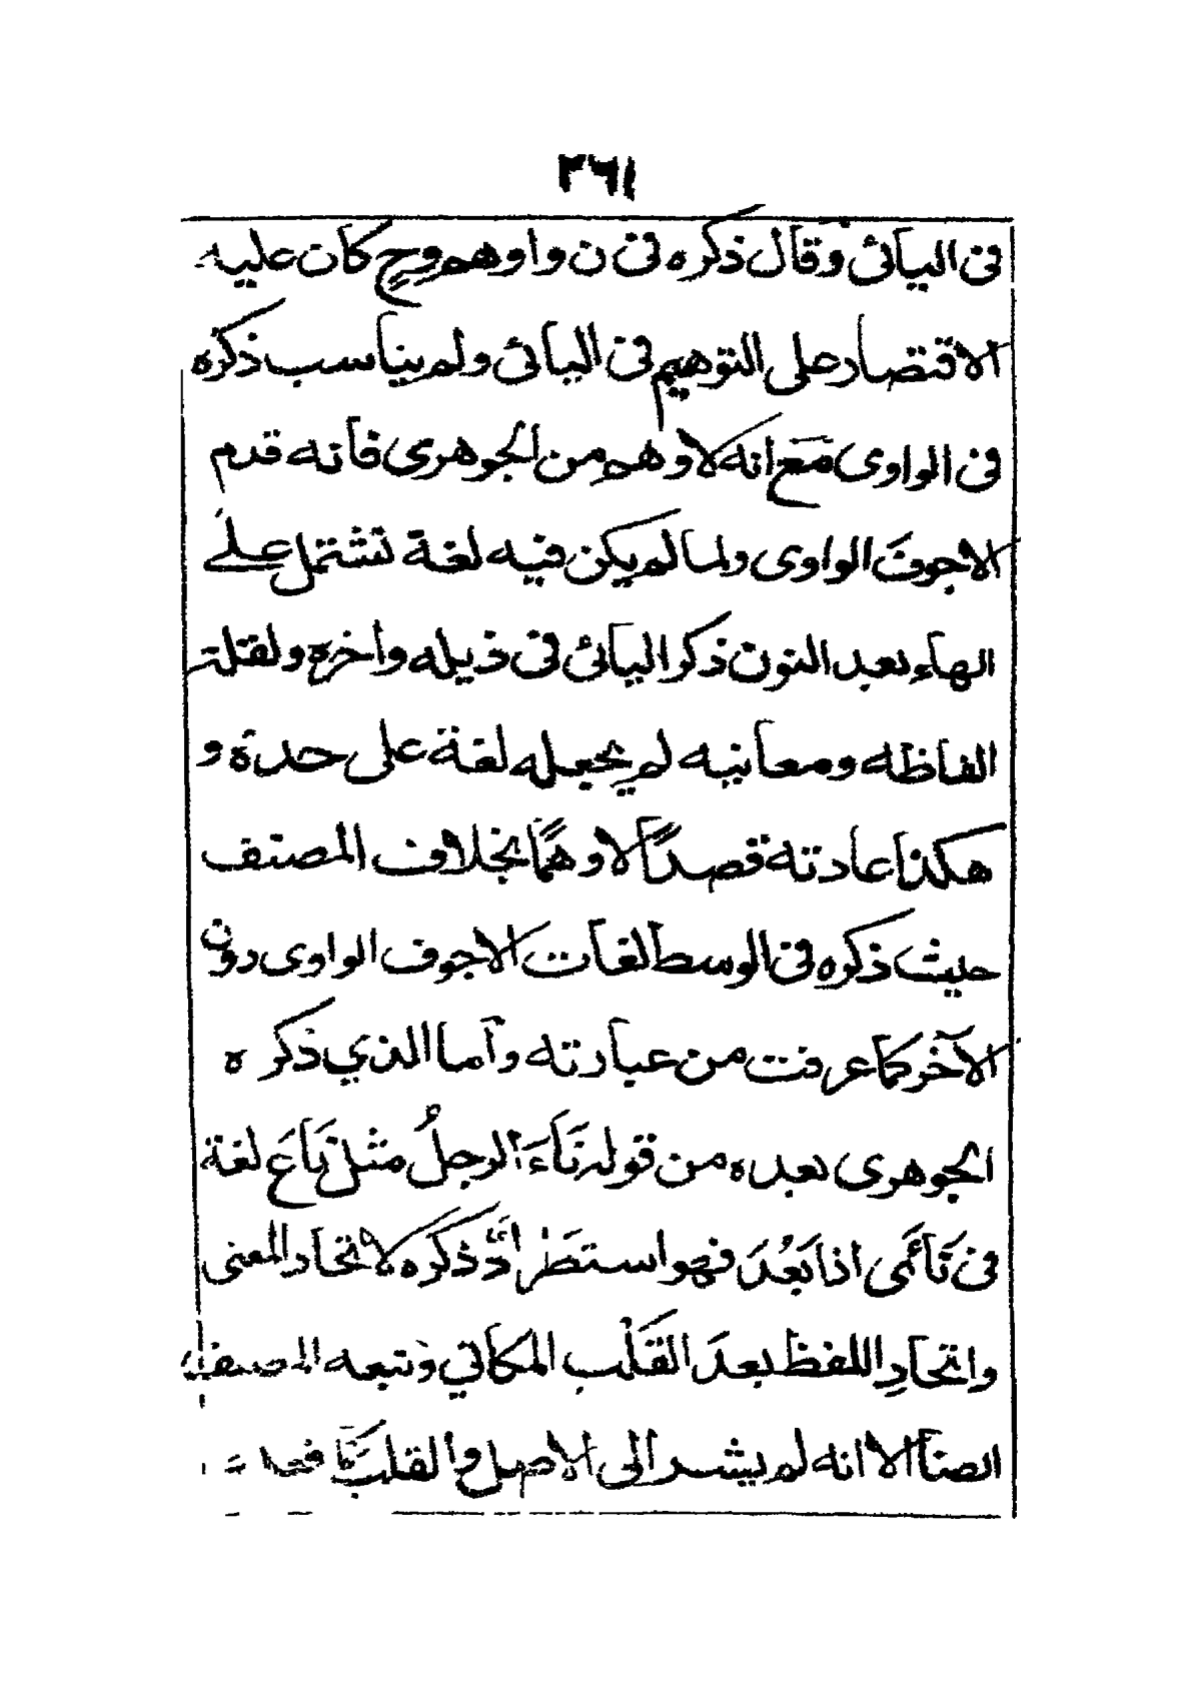 ٣٦١
فى اليائى وقال ذكره فى ن و ا و وهم وح كان عليه
الاقتصار على التوهيم فى اليائى ولم يناسب ذكره
فى الواوى مع انه لا وهم من الجوهرى فانه قدم
الاجوفَ الواوى ولما لم يكن فيه لغة تشتمل على
الهاء بعد النون ذكر اليائى فى ذيله واخره ولقلة
الفاظه ومعانيه لم يجعله لغة على حدة و
هكذا عادته قصدًا لا وهمًا بخلاف المصنف
حيث ذكره فى الوسط لغات الاجوف الواوى دون
الآخر كما عرفت من عبارته وأما الذي ذكره
الجوهرى بعده من قوله نَاءَ الرجلُ مثل نَاعَ لغة
فى نَأَى اذا بَعُدَ فهو استطَرادٌ ذكره لاتحاد المعنى
واتحادِ اللفظ بعدَ القَلْب المكاني وتبعه المصنف
ايضا الا انه لم يشر الى الاصل والقلب